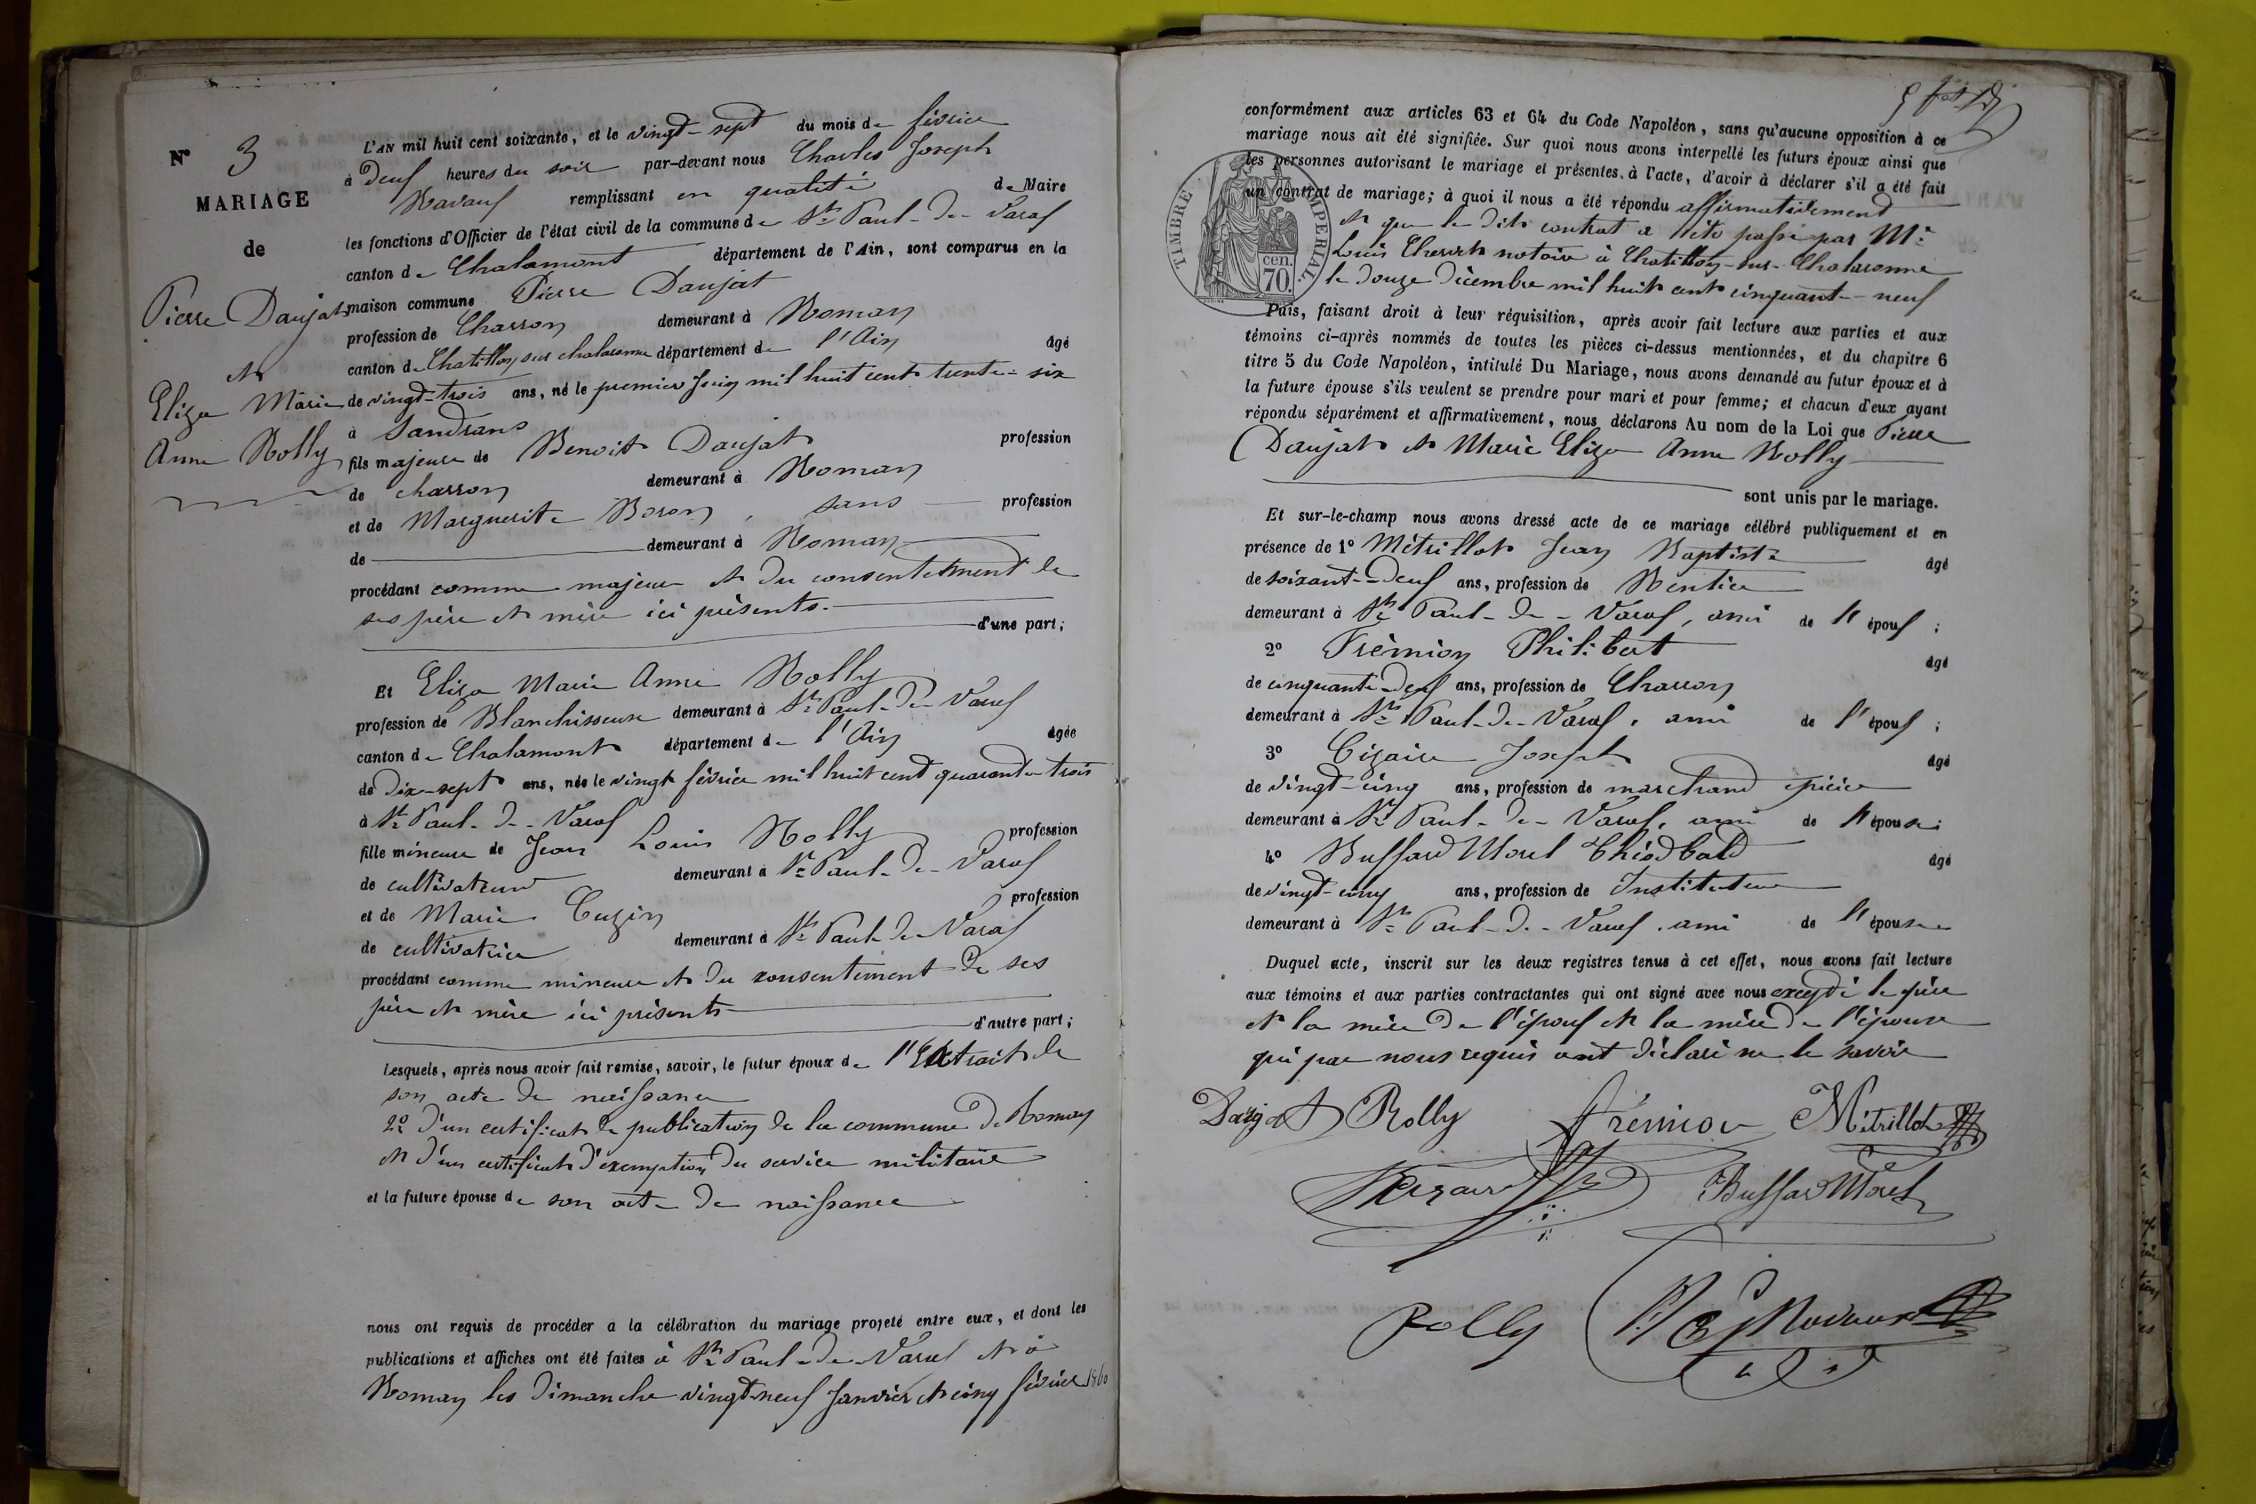 N° 3
MARIAGE
de
Pierre Daujat
et
Eliza Marie
Anne Rolly
L'AN mil huit cent soixante, et le vingt-sept du mois de février
à deux heures du soir par-devant nous Charles Joseph
Navaux remplissant en qualité de Maire
les fonctions d'Officier de l'état civil de la commune de St Paul-de-Varax
canton de Chalamont département de l'Ain, sont comparus en la
maison commune Pierre Daujat
profession de Charron demeurant à Roman
canton de Chatillon sur chalaronne département de l'Ain âgé
de vingt-trois ans, né le premier Juin mil huit cent trente-six
à Sandrans
fils majeur de Benoit Daujat profession
de charron demeurant à Roman
et de Marguerite Boron, sans profession
de demeurant à Roman
procédant comme majeur et du consentement de
ses père et mère ici présents. d'une part;
Et Eliza Marie Anne Rolly
profession de Blanchisseuse demeurant à St Paul-de-Varax
canton de Chalamont département de l'Ain âgée
de dix-sept ans, née le vingt février mil huit cent quarante trois
à St Paul-de-Varax
fille mineure de Jean Louis Rolly profession
de cultivateur demeurant à St Paul-de-Varax
et de Marie Cuzin profession
de cultivatrice demeurant à St Paul-de-Varax
procédant comme mineure et du consentement de ses
père et mère ici présents d'autre part;
Lesquels, après nous avoir fait remise, savoir, le futur époux de l'Extrait de
son acte de naissance
2° d'un certificat de publication de la commune de Roman
et d'un certificat d'exemption du service militaire
et la future épouse de son acte de naissance
nous ont requis de procéder à la célébration du mariage projeté entre eux, et dont les
publications et affiches ont été faites à St Paul-de-Varax et à
Roman les dimanche vingt-neuf Janvier et cinq février 1860
conformément aux articles 63 et 64 du Code Napoléon, sans qu'aucune opposition à ce
mariage nous ait été signifiée. Sur quoi nous avons interpellé les futurs époux ainsi que
les personnes autorisant le mariage et présentes à l'acte, d'avoir à déclarer s'il a été fait
un contrat de mariage; à quoi il nous a été répondu affirmativement
et que le dit contrat a été passé par Me
Louis notaire à Chatillon-sur-Chalaronne
le douze décembre mil huit cent cinquante-neuf
TIMBRE IMPERIAL.
cen.
70.
Puis, faisant droit à leur réquisition, après avoir fait lecture aux parties et aux
témoins ci-après nommés de toutes les pièces ci-dessus mentionnées, et du chapitre 6
titre 5 du Code Napoléon, intitulé Du Mariage, nous avons demandé au futur époux et à
la future épouse s'ils veulent se prendre pour mari et pour femme; et chacun d'eux ayant
répondu séparément et affirmativement, nous déclarons Au nom de la Loi que Pierre
Daujat et Marie Eliza Anne Rolly
sont unis par le mariage.
Et sur-le-champ nous avons dressé acte de ce mariage célébré publiquement et en
présence de 1° Métrillot Jean Baptiste âgé
de soixante-deux ans, profession de Rentier
demeurant à St Paul-de-Varax, ami de l'époux;
2° Frémion Philibert âgé
de cinquante-deux ans, profession de Charron
demeurant à St Paul-de-Varax, ami de l'époux;
3° Cizaire Joseph âgé
de vingt-cinq ans, profession de marchand épicier
demeurant à St Paul-de-Varax, ami de l'épouse;
4° Buffard Morel Théodbald âgé
de vingt-cinq ans, profession de Instituteur
demeurant à St Paul-de-Varax, ami de l'épouse
Duquel acte, inscrit sur les deux registres tenus à cet effet, nous avons fait lecture
aux témoins et aux parties contractantes qui ont signé avec nous excepté le père
et la mère de l'époux et la mère de l'épouse
qui par nous requis ont déclaré ne le savoir
Daujat Rolly Frémion Métrillot
Cizaire Buffard Morel
Rolly Navaux